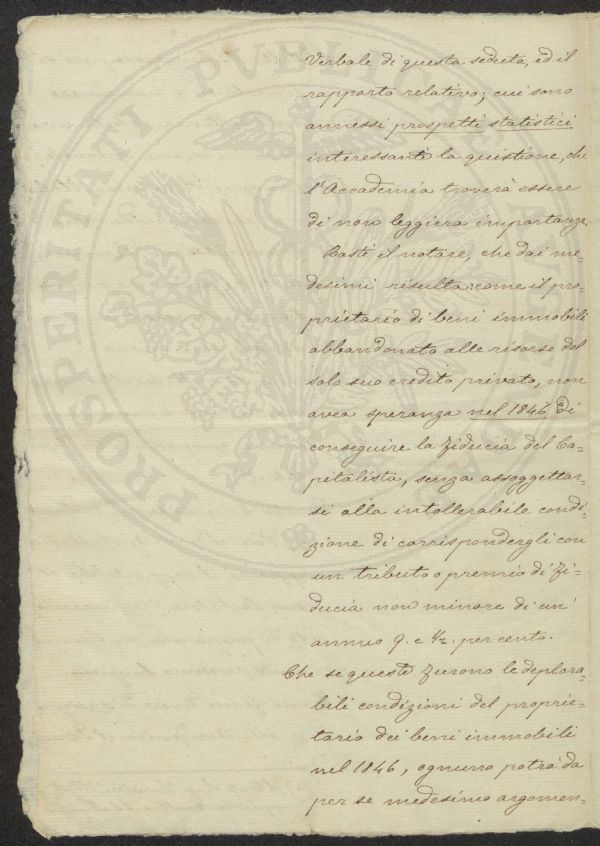 Verbale di questa seduta, ed il
rapporto relativo; cui sono
annessi prospetti statistici
interessanti la quistione, che
l'Accademia troverà essere
di non leggiera importanza.
Basti il notare, che dai me-
desimi risulta: come il pro-
prietario di beni immobili
abbandonato alle risorse del
solo suo credito privato, non
avea speranza nel 1846 di
conseguire la fiducia del Ca-
pitalista, senza assoggettar-
si alla intollerabile condi-
zione di corrispondergli con
un tributo o premio di fi-
ducia non minore di un'
annuo 9. e ½. per cento.
Che se queste furono le deplora-
bili condizioni del proprie-
tario dei beni immobili
nel 1846, ognuno potrà da
per se medesimo argomen-
PROSPERITATI PVBLICAE